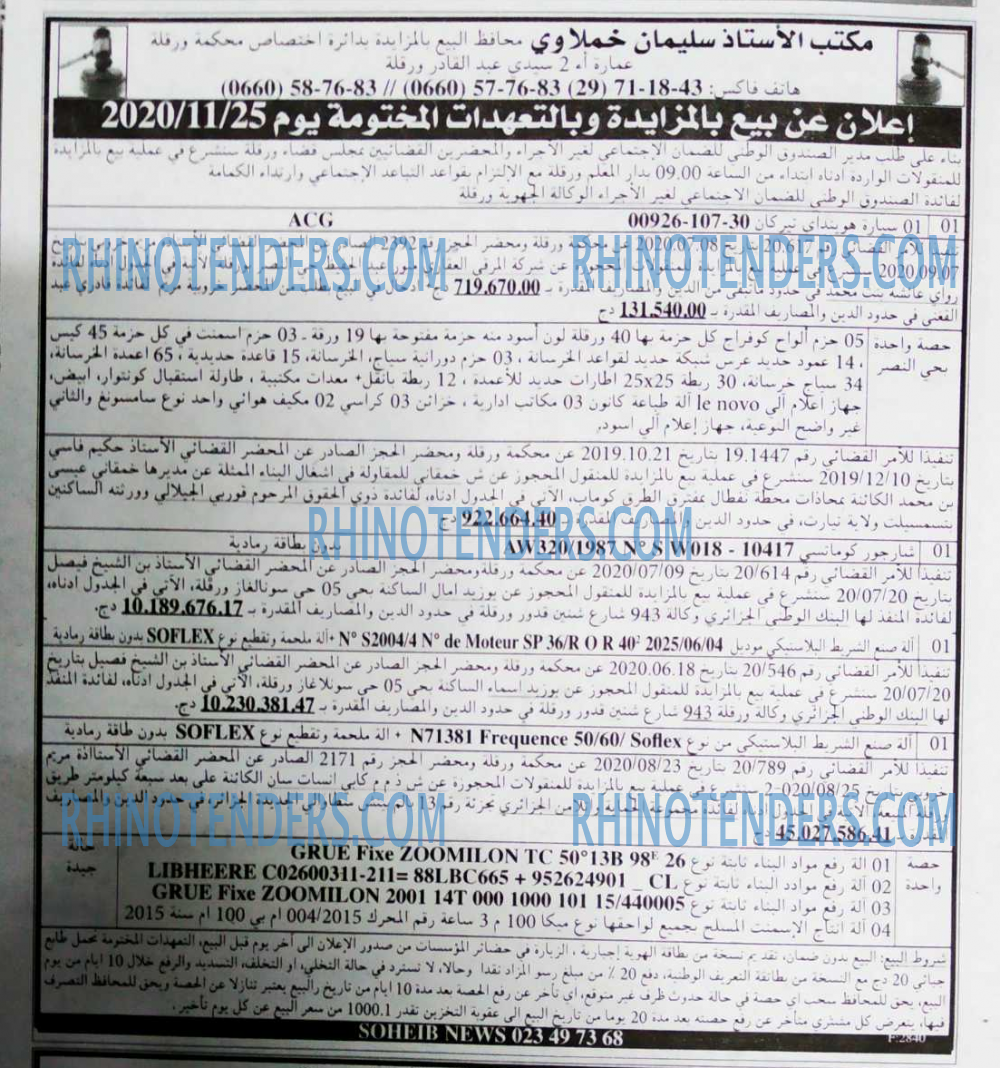 مكتب الأستاذ سليمان خملاوي محافظ البيع بالمزايدة بدائرة اختصاص محكمة ورقلة
عمارة أء 2 سيدي عبد القادر ورقلة
هاتف فاكس: 43-18-71 (29) 83-76-57 (0660) // 83-76-58 (0660)
إعلان عن بيع بالمزايدة وبالتعهدات المختومة يوم 2020/11/25
بناء على طلب مدير الصندوق الوطني للضمان الإجتماعي لغير الأجراء والمحضرين القضائيين بمجلس قضاء ورقلة سنشرع في عملية بيع بالمزايدة
للمنقولات الواردة ادناه ابتداء من الساعة 09.00 بدار المعلم ورقلة مع الإلتزام بقواعد التباعد الإجتماعي وارتداء الكمامة
لفائدة الصندوق الوطني للضمان الاجتماعي لغير الأجراء الوكالة الجهوية ورقلة
01 01 سيارة هوينداي تيركان 30-107-00926 ACG
20.617 بتاريخ 2020.07.08 عن محكمة ورقلة ومحضر الحجز رقم 2392 الصادر عن المحضر القضائي
2020.09.07 سنشرع في عملية بيع بالمزايدة للمنقولات المحجوز عن شركة المرقي العقاري
رواي عائشة بنت محمد في حدود ماتبقى من الدين والمصاريف المقدرة بـ 719.670.00 دج لفائدة قادري عبد
الغني في حدود الدين والمصاريف المقدرة بـ 131.540.00 دج
حصة واحدة بحي النصر
05 حزم ألواح كوفراج كل حزمة بها 40 ورقة لون أسود منه حزمة مفتوحة بها 19 ورقة - 03 حزم اسمنت في كل حزمة 45 كيس
، 14 عمود حديد عرس شبكة حديد لقواعد الخرسانة ، 03 حزم دورانية سياج, الخرسانة، 15 قاعدة حديدية ، 65 اعمدة الخرسانة,
34 سياج خرسانة, 30 ربطة 25x25 اطارات حديد للأعمدة ، 12 ربطة بانقل+ معدات مكتبية ، طاولة استقبال كونتوار، ابيض,
جهاز اعلام ألى le novo آلة طباعة كانون 03 مكاتب ادارية ، خزائن 03 كراسي 02 مكيف هوائي واحد نوع سامسونغ والثاني
غير واضح النوعية, جهاز إعلام ألى اسود.
تنفيذا للأمر القضائي رقم 19.1447 بتاريخ 2019.10.21 عن محكمة ورقلة ومحضر الحجز الصادر عن المحضر القضائي الأستاذ حكيم فاسي
بتاريخ 2019/12/10 سنشرع في عملية بيع بالمزايدة للمنقول المحجوز عن ش خمقاني للمقاولة في اشغال البناء الممثلة عن مديرها خمقاني عيسى
بن محمد الكائنة محاذات محطة نفطال بمفترق الطرق كوماب، الآتي في الجدول ادناه، لفائدة ذوي الحقوق المرحوم قوربي الجيلالي وورثته الساكنين
بتسمسيلت ولاية تيارت، في حدود الدين والمصاريف المقدرة بـ 922.664.40 دج
01 شارجور كوماتسي AW320/1987 N° S W018 - 10417 بدون بطاقة رمادية
تنفيذا للأمر القضائي رقم 20/614 بتاريخ 2020/07/09 عن محكمة ورقلة ومحضر الحجز الصادر عن المحضر القضائي الأستاذ بن الشيخ فيصل
بتاريخ 20/07/20 سنشرع في عملية بيع بالمزايدة للمنقول المحجوز عن بوزيد امال الساكنة بحي 05 حي سونالغاز ورقلة، الآتي في الجدول ادناه،
لفائدة المنفذ لها البنك الوطني الجزائري وكالة 943 شارع شنين قدور ورقلة في حدود الدين والمصاريف المقدرة بـ 10.189.676.17 دج.
01 آلة صنع الشريط البلاستيكي موديل N° S2004/4 N° de Moteur SP 36/R O R 40² 2025/06/04 +آلة ملحمة وتقطيع نوع SOFLEX بدون بطاقة رمادية
تنفيذا للأمر القضائي رقم 20/546 بتاريخ 2020.06.18 عن محكمة ورقلة ومحضر الحجز الصادر عن المحضر القضائي الأستاذ بن الشيخ فصيل بتاريخ
20/07/20 سنشرع في عملية بيع بالمزايدة للمنقول المحجوز عن بوزيد اسماء الساكنة بحي 05 حي سونلاغاز ورقلة، الآتي في الجدول ادناه، لفائدة المنفذ
لها البنك الوطني الجزائري وكالة ورقلة 943 شارع شنين قدور ورقلة في حدود الدين والمصاريف المقدرة بـ 10.230.381.47 دج.
01 آلة صنع الشريط البلاستيكي من نوع N71381 Frequence 50/60/ Soflex + الة ملحمة وتقطيع نوع SOFLEX بدون طاقة رمادية
تنفيذا للأمر القضائي رقم 20/789 بتاريخ 2020/08/23 عن محكمة ورقلة ومحضر الحجز رقم 2171 الصادر عن المحضر القضائي الأستااذة مريم
بتاريخ 020/08/25-2 سنشرع في عملية بيع بالمزايدة للمنقولات المحجوزة عن ش ذ م م كابي انسات سان الكائنة على بعد سبعة كيلومتر طريق
في حدود الدين والمصاريف
45.027.586.41 دج
حصة واحدة
01 الة رفع مواد البناء ثابتة نوع GRUE Fixe ZOOMILON TC 50°13B 98E 26
02 آلة رفع موادد البناء ثابتة نوع LIBHEERE C02600311-211= 88LBC665 + 952624901 _ CL
03 آلة رفع مواد البناء ثابتة نوع GRUE Fixe ZOOMILON 2001 14T 000 1000 101 15/440005
04 آلة انتاج الإسمنت المسلح بجميع لواحقها نوع ميكا 100 م 3 ساعة رقم المحرك 004/2015 ام بي 100 ام سنة 2015
حالة جيدة
شروط البيع: البيع بدون ضمان، تقديم نسخة من بطاقة الهوية إجبارية ، الزيارة في حضائر المؤسسات من صدور الإعلان الى أخر يوم قبل البيع، التعهدات المختومة تحمل طابع
جبائي 20 دج مع النسخة من بطاقتة التعريف الوطنية، دفع 20 ٪ من مبلغ رسو المزاد نقدا وحالا، لا تسترد في حالة التخلي، او التخلف، التسديد والرفع خلال 10 ايام من يوم
البيع، يحق للمحافظ سحب اي حصة في حالة حدوث ظرف غير متوقع، اي تأخر عن رفع الحصة بعد مدة 10 ايام من تاريخ رالبيع يعتبر تنازلا عن الحصة ويحق للمحافظ التصرف
فيها، يتعرض كل مشتري متأخر عن رفع حصته بعد مدة 20 يوما من تاريخ البيع الى عقوبة التخزين تقدر 1000.1 من سعر البيع عن كل يوم تأخير.
SOHEIB NEWS 023 49 73 68
F:2840
RHINOTENDERS.COM
RHINOTENDERS.COM
RHINOTENDERS.COM
RHINOTENDERS.COM
RHINOTENDERS.COM